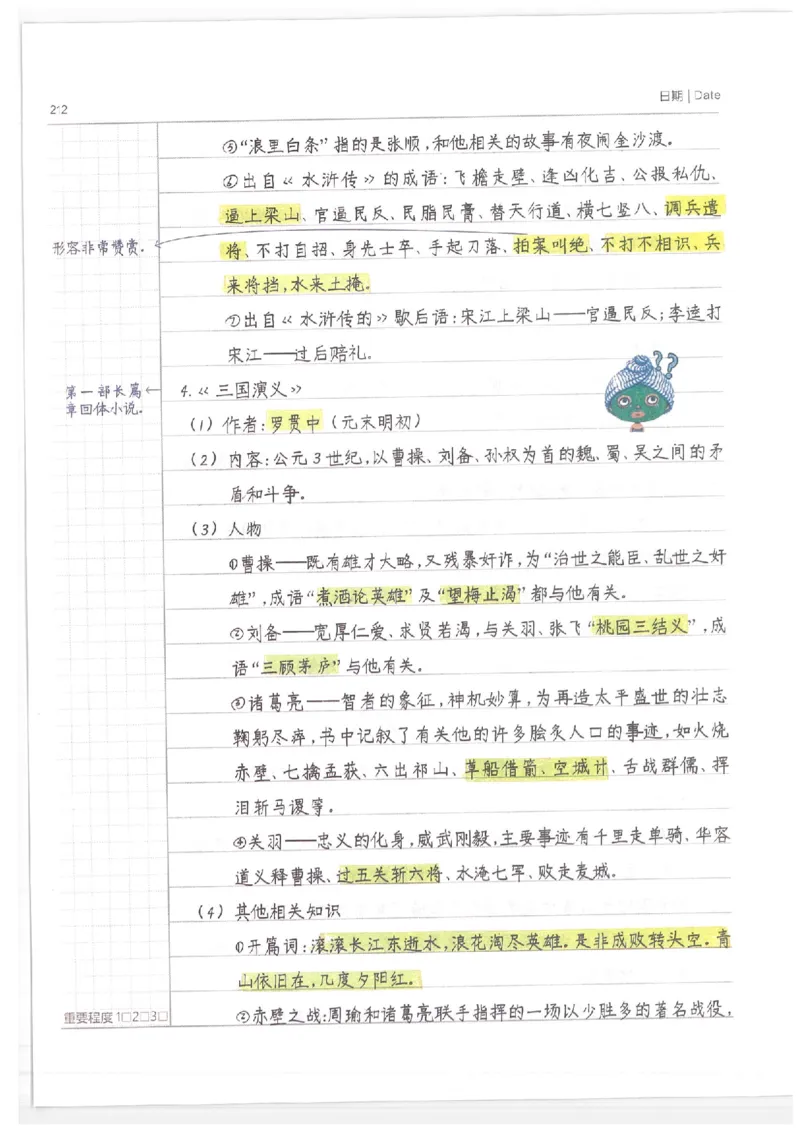 212
日期 | Date
⑤“浪里白条”指的是张顺,和他相关的故事有夜闹金沙渡。
⑥出自《水浒传》的成语:飞檐走壁、逢凶化吉、公报私仇、
逼上梁山、官逼民反、民脂民膏、替天行道、横七竖八、调兵遣
形容非常赞赏。
将、不打自招、身先士卒、手起刀落、拍案叫绝、不打不相识、兵
来将挡,水来土掩。
⑦出自《水浒传的》歇后语:宋江上梁山——官逼民反;李逵打
宋江——过后赔礼。
第一部长篇
章回体小说。
4.《三国演义》
(1)作者:罗贯中(元末明初)
(2)内容:公元3世纪,以曹操、刘备、孙权为首的魏、蜀、吴之间的矛
盾和斗争。
(3)人物
①曹操——既有雄才大略,又残暴奸诈,为“治世之能臣、乱世之奸
雄”,成语“煮酒论英雄”及“望梅止渴”都与他有关。
②刘备——宽厚仁爱、求贤若渴,与关羽、张飞“桃园三结义”,成
语“三顾茅庐”与他有关。
③诸葛亮——智者的象征,神机妙算,为再造太平盛世的壮志
鞠躬尽瘁,书中记叙了有关他的许多脍炙人口的事迹,如火烧
赤壁、七擒孟获、六出祁山、草船借箭、空城计、舌战群儒、挥
泪斩马谡等。
④关羽——忠义的化身,威武刚毅,主要事迹有千里走单骑、华容
道义释曹操、过五关斩六将、水淹七军、败走麦城。
(4)其他相关知识
①开篇词:滚滚长江东逝水,浪花淘尽英雄。是非成败转头空。青
山依旧在,几度夕阳红。
②赤壁之战:周瑜和诸葛亮联手指挥的一场以少胜多的著名战役,
重要程度 1□2□3□